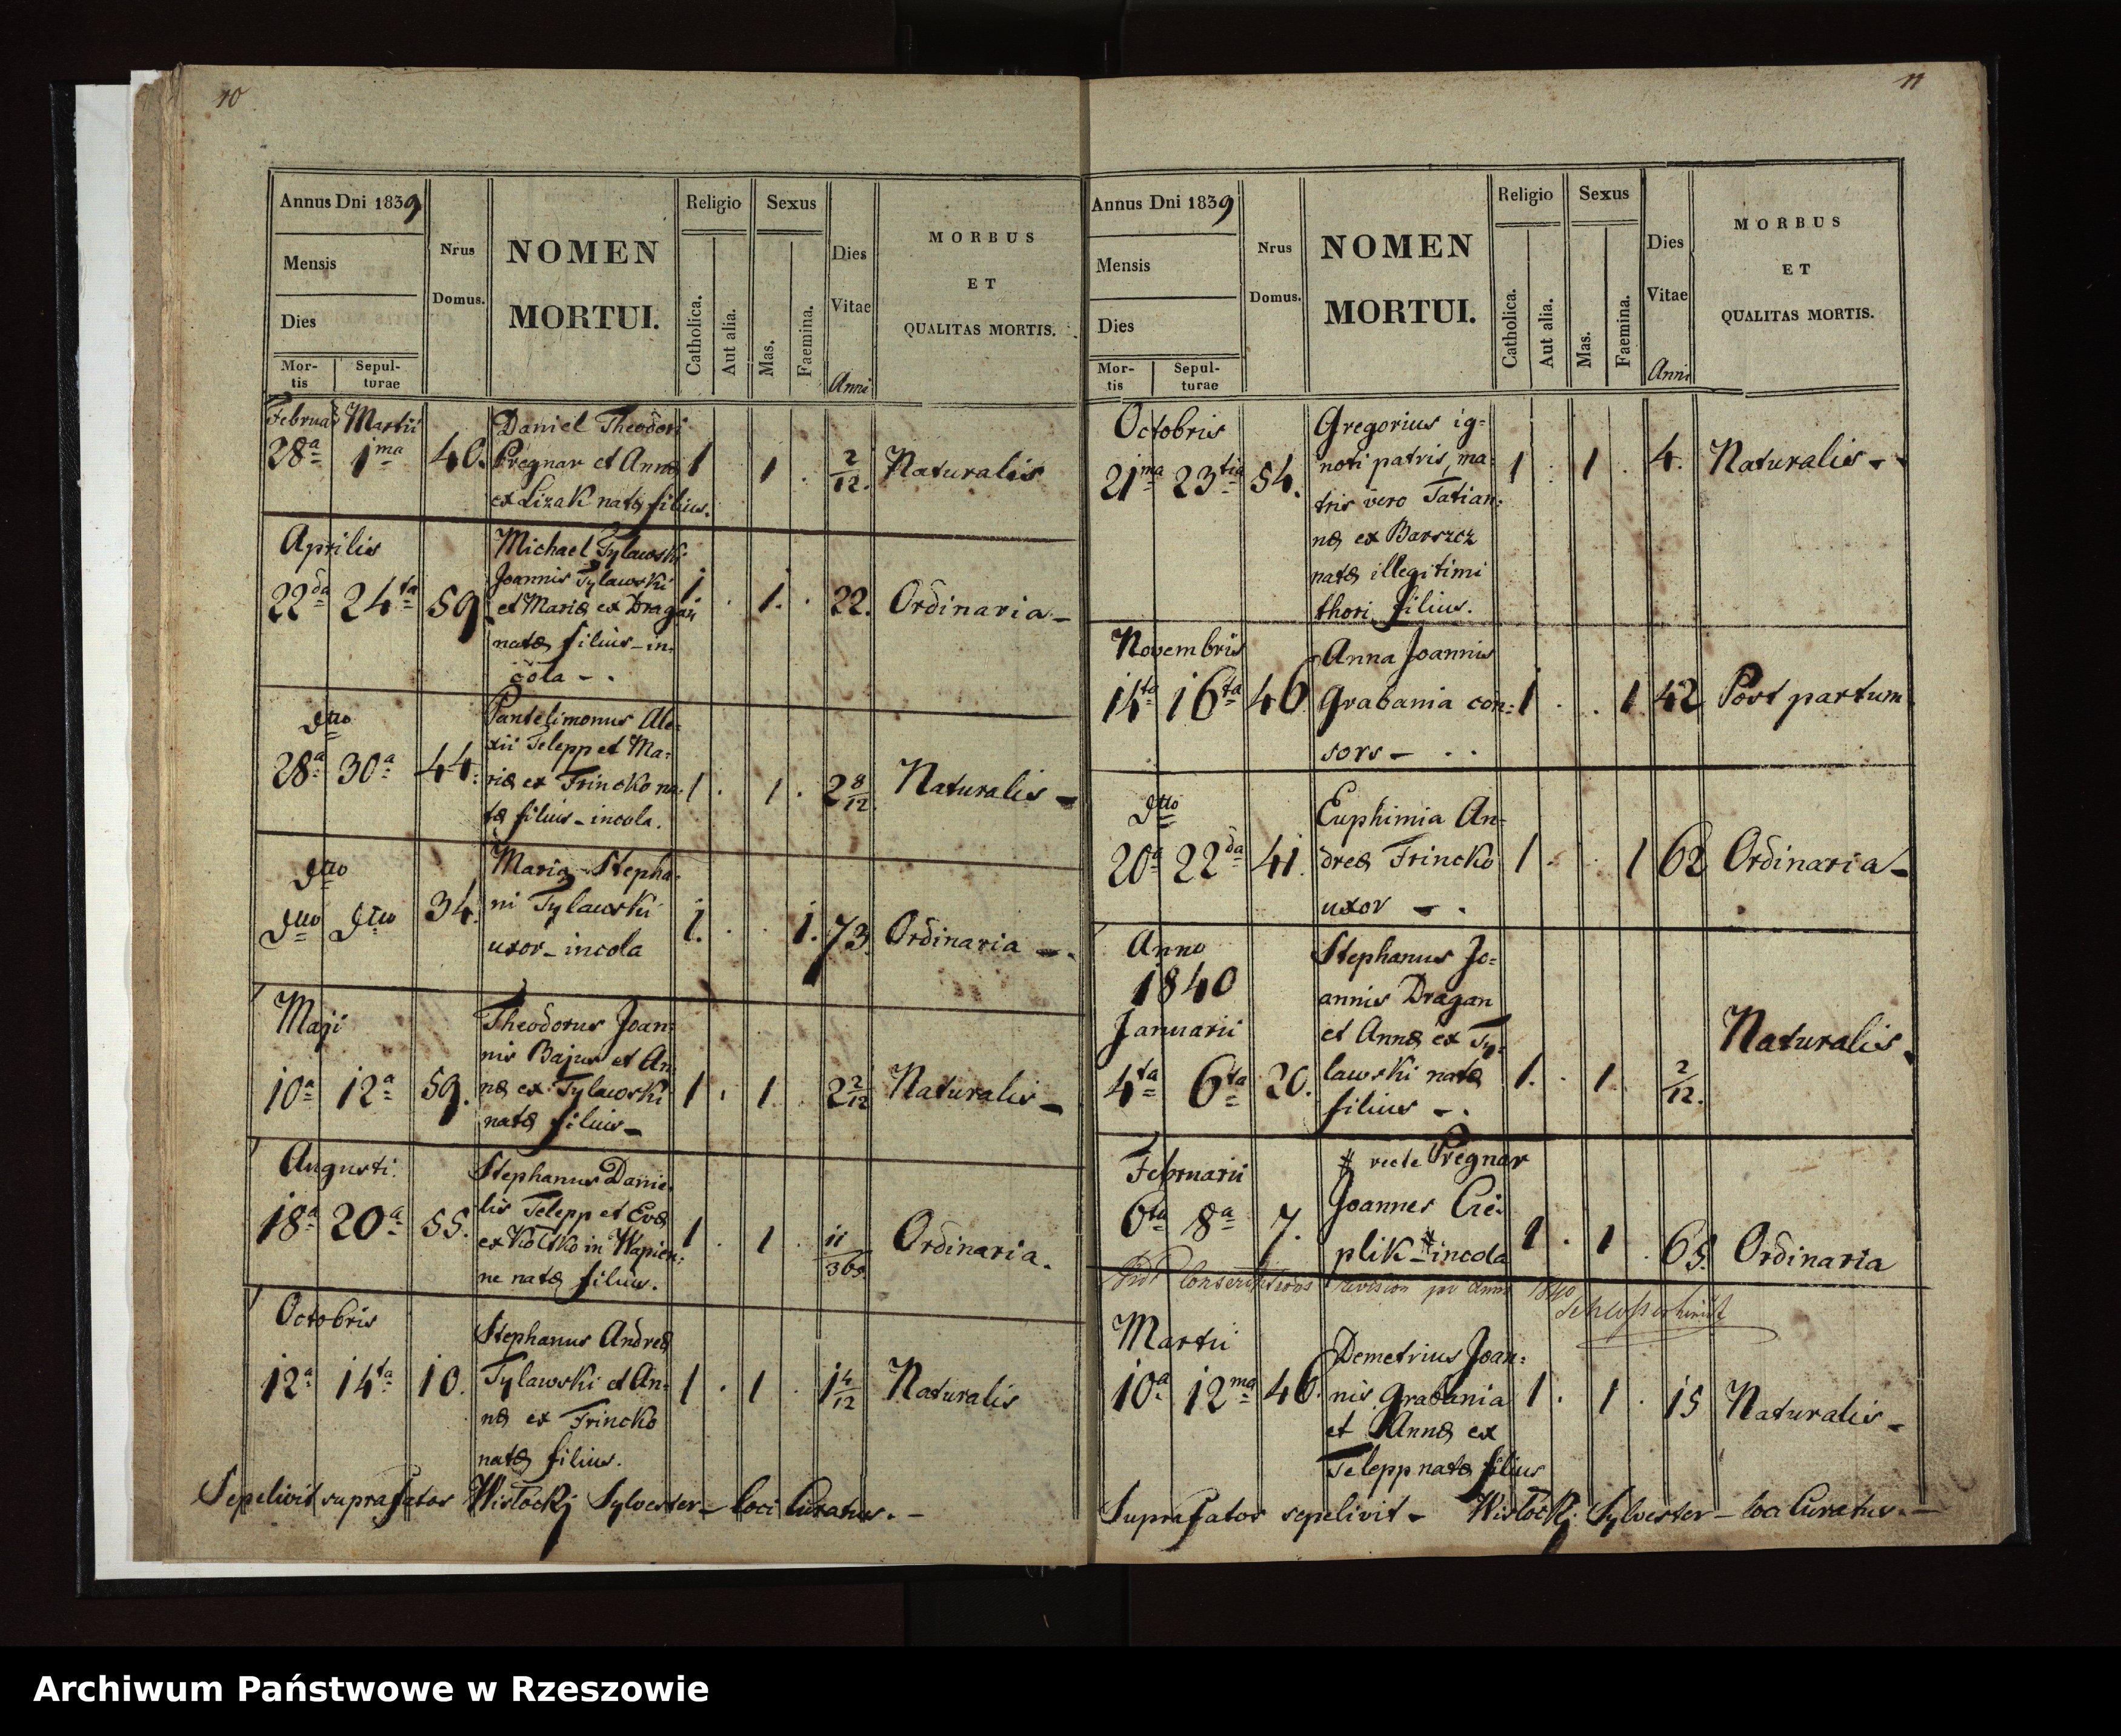 10
Annus Dni 1839
Mensis
Dies
Mor-
tis
Sepul-
turae
Nrus
Domus.
NOMEN
MORTUI.
Religio
Catholica.
Aut alia.
Sexus
Mas.
Faemina.
Dies
Vitae
Anni
MORBUS
ET
QUALITAS MORTIS.
Februar Martii
28a 1ma 40.
Daniel Theodori
Pregnar et Annæ
ex Lizak natæ filius.
1 1 2/12. Naturalis
Aprilis
22da 24ta 59
Michael Tylawski
Joannis Tylawski
et Mariæ ex Dragan
natæ filius - in-
cola - .
1 1. 22. Ordinaria -
Dtto
28a 30a 44.
Pantelimonus Ale-
xii Telepp et Ma-
riæ ex Frincko na-
tæ filius - incola.
1 1 2 8/12. Naturalis -
Dtto
Dtto Dtto 34.
Maria Stepha-
ni Tylawski
uxor - incola
1. 1. 73 Ordinaria -.
Maji
10a 12a 59.
Theodorus Joan-
nis Bajus et An-
næ ex Tylawski
natæ filius -
1 1 2 2/12 Naturalis -
Augusti
18a 20a 55.
Stephanus Danie-
lis Telepp et Evæ
ex Kocko in Wapien-
ne natæ filius.
1 1 11/365 Ordinaria.
Octobris
12a 14ta 10.
Stephanus Andreæ
Tylawski et An-
næ ex Frincko
natæ filius.
1 1 1 4/12 Naturalis
Sepelivit suprafatos Wisłocki Sylvester - loci Curatus. -
11
Annus Dni 1839
Mensis
Dies
Mor-
tis
Sepul-
turae
Nrus
Domus.
NOMEN
MORTUI.
Religio
Catholica.
Aut alia.
Sexus
Mas.
Faemina.
Dies
Vitae
Anni
MORBUS
ET
QUALITAS MORTIS.
Octobris
21ma 23tia 54.
Gregorius ig-
noti patris, ma-
tris vero Tatian-
næ ex Barszcz
natæ illegitimi
thori filius.
1 1 4. Naturalis -
Novembris
14ta 16ta 46
Anna Joannis
Grabania con-
sors - . .
1 1 42 Post partum
Dtto
20a 22da 41.
Euphimia An-
dreæ Frincko
uxor - .
1 1 62 Ordinaria -
Anno
1840
Januarii
4ta 6ta 20.
Stephanus Jo-
annis Dragan
et Annæ ex Ty-
lawski natæ
filius - .
1. 1 2/12. Naturalis
Februarii
6ta 8a 7.
# recte Pregnar
Joannes Cie-
plik # incola
1 1 65. Ordinaria
Conscriptions revision pro anno 1840
Martii
10a 12ma 46.
Demetrius Joan-
nis Grabania
et Annæ ex
Telepp natæ filius
1 1 15 Naturalis -
Suprafatos sepelivit - Wisłocki Sylvester - loci Curatus. -
Archiwum Państwowe w Rzeszowie